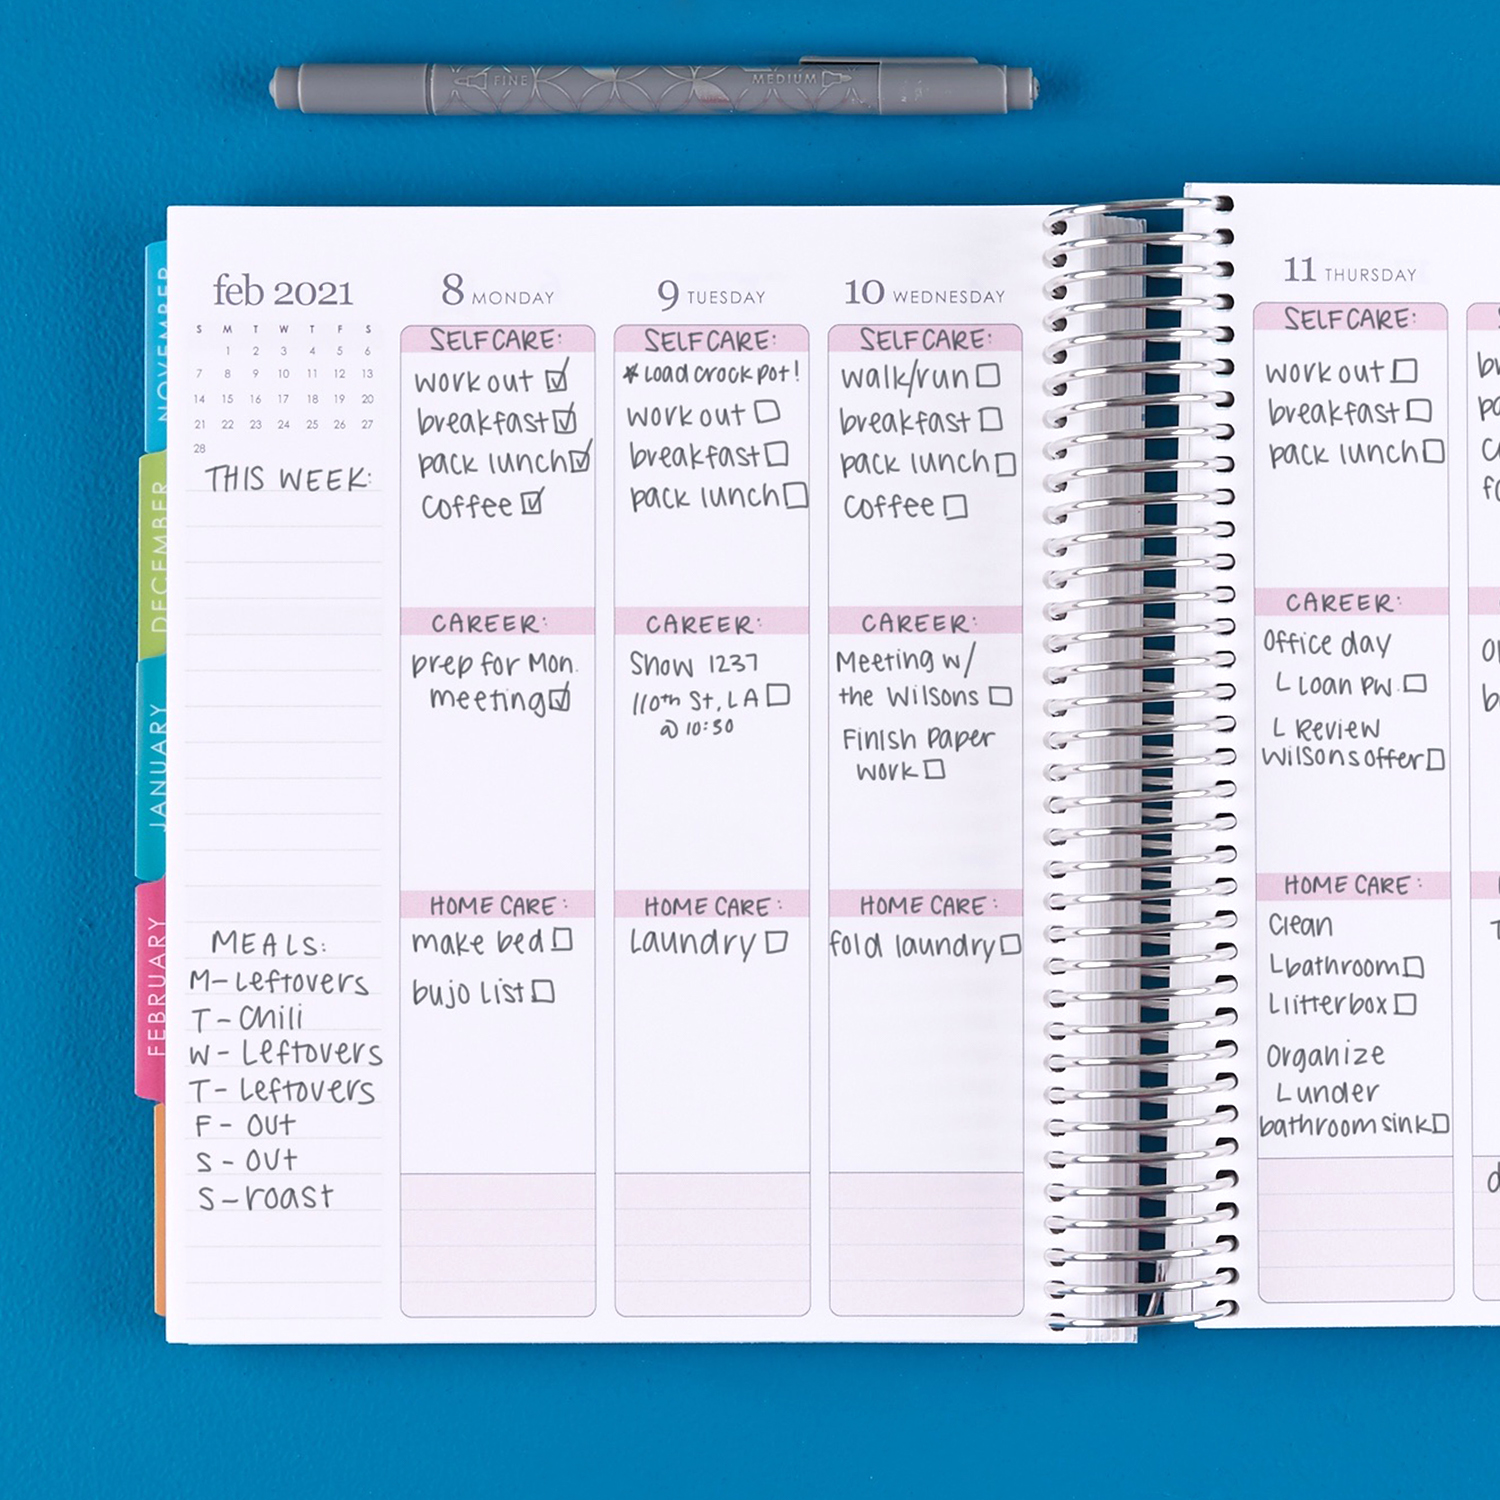 FINE MEDIUM
NOVEMBER
DECEMBER
JANUARY
FEBRUARY
feb 2021
S M T W T F S
1 2 3 4 5 6
7 8 9 10 11 12 13
14 15 16 17 18 19 20
21 22 23 24 25 26 27
28
THIS WEEK:
MEALS:
M- Leftovers
T - Chili
W - Leftovers
T - Leftovers
F - OUT
S - OUT
S - roast
8 MONDAY
SELFCARE:
work out
breakfast
pack lunch
Coffee
CAREER:
prep for Mon.
meeting
HOME CARE:
make bed
bujo list
9 TUESDAY
SELFCARE:
* Load crock pot!
work out
breakfast
pack lunch
CAREER:
Show 1237
110th St, LA
@ 10:30
HOME CARE:
Laundry
10 WEDNESDAY
SELFCARE:
walk/run
breakfast
pack lunch
Coffee
CAREER:
Meeting w/
the Wilsons
Finish Paper
work
HOME CARE:
fold laundry
11 THURSDAY
SELFCARE:
work out
breakfast
pack lunch
CAREER:
Office day
L Loan PW.
L Review
Wilsons offer
HOME CARE:
Clean
L bathroom
L litterbox
Organize
L under
bathroom sink